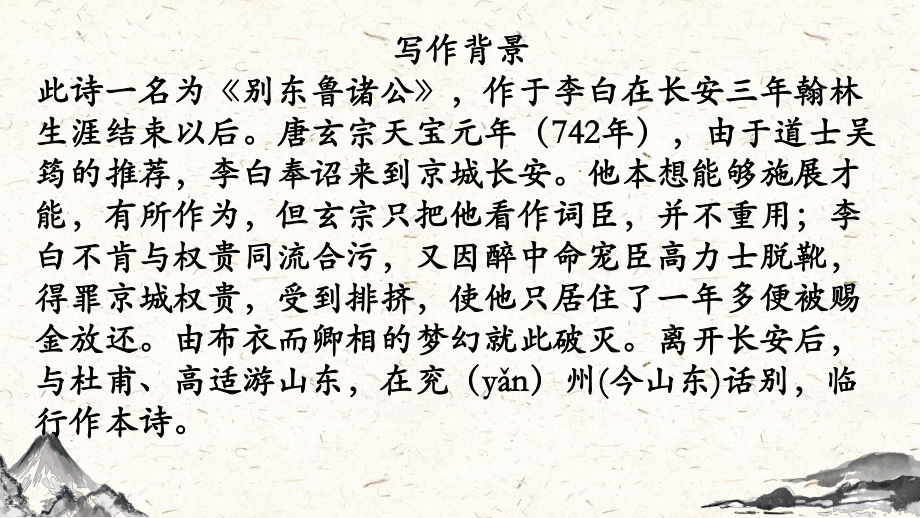 写作背景
此诗一名为《别东鲁诸公》，作于李白在长安三年翰林
生涯结束以后。唐玄宗天宝元年（742年），由于道士吴
筠的推荐，李白奉诏来到京城长安。他本想能够施展才
能，有所作为，但玄宗只把他看作词臣，并不重用；李
白不肯与权贵同流合污，又因醉中命宠臣高力士脱靴，
得罪京城权贵，受到排挤，使他只居住了一年多便被赐
金放还。由布衣而卿相的梦幻就此破灭。离开长安后，
与杜甫、高适游山东，在兖（yǎn）州(今山东)话别，临
行作本诗。